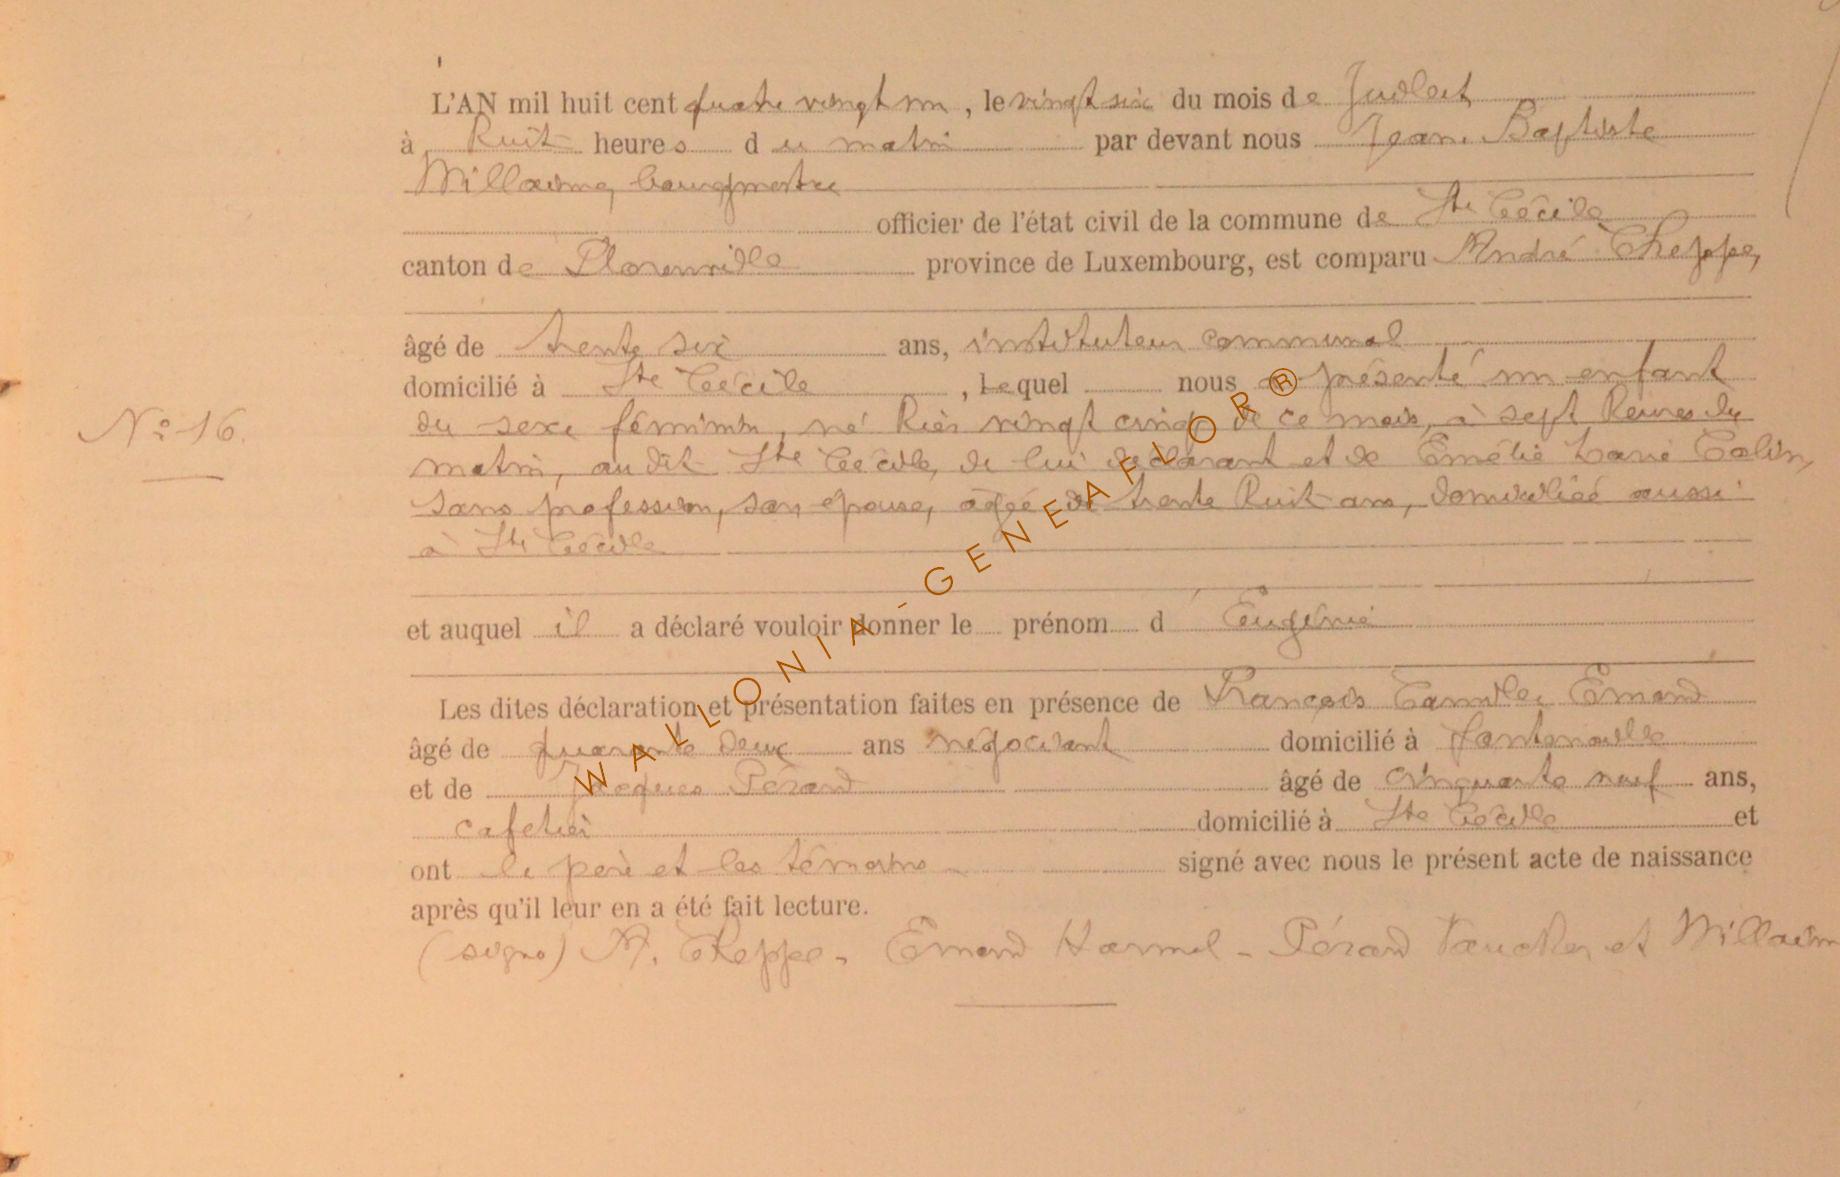 L'AN mil huit cent quatre vingt un, le vingt six du mois de Juillet
à huit heures du matin par devant nous Jean Baptiste
Willaime, bourgmestre
officier de l'état civil de la commune de Ste Cécile
canton de Florenville province de Luxembourg, est comparu André Cheppe,
âgé de trente six ans, instituteur communal
domicilié à Ste Cécile, Lequel nous a présenté un enfant
N° 16. du sexe féminin, né hier vingt cinq de ce mois, à sept heures du
matin, au dit Ste Cécile, de lui déclarant et de Emélie Marie Colin,
sans profession, son épouse, âgée de trente huit ans, domiciliée aussi
à Ste Cécile
et auquel il a déclaré vouloir donner le prénom d Eugénie
Les dites déclaration et présentation faites en présence de François Camille Emond
âgé de quarante deux ans négociant domicilié à fontenoille
et de Jacques Pérard âgé de cinquante neuf ans,
cafetier domicilié à Ste Cécile et
ont le père et les témoins signé avec nous le présent acte de naissance
après qu'il leur en a été fait lecture.
(signé) A. Cheppe - Emond Harmel - Pérard et Willaime
WALLONIA-GENEAFLOR®